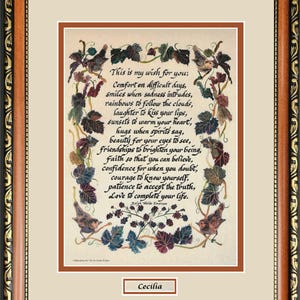 This is my wish for you:
Comfort on difficult days,
smiles when sadness intrudes,
rainbows to follow the clouds,
laughter to kiss your lips,
sunsets to warm your heart,
hugs when spirits sag,
beauty for your eyes to see,
Friendships to brighten your being,
faith so that you can believe,
confidence for when you doubt,
courage to know yourself,
patience to accept the truth,
Love to complete your life.
Ralph Waldo Emerson
Cecilia